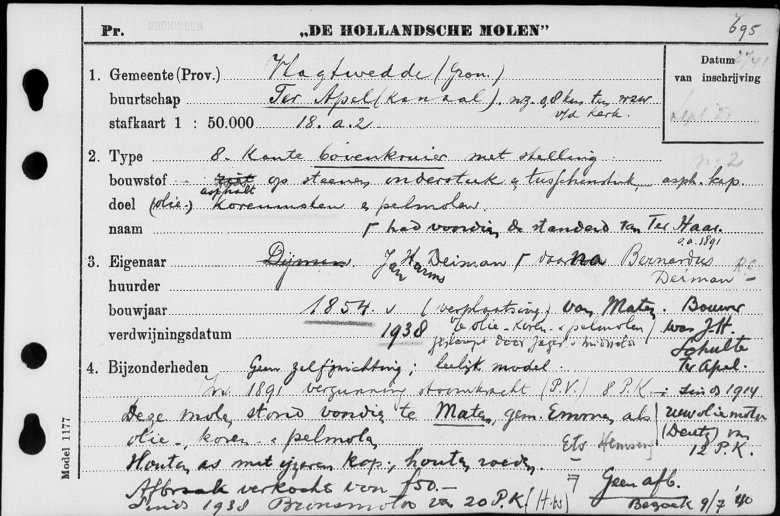 Pr. GRONINGEN „DE HOLLANDSCHE MOLEN" 695
Datum van inschrijving
1. Gemeente (Prov.) Vlagtwedde (Gron.)
buurtschap Ter Apel (Kanaal). nz. 0,8 km ten
v/d kerk.
stafkaart 1 : 50.000 18. a. 2
no 2
2. Type 8-kante bovenkruier met stelling
bouwstof riet op steenen onderstuk & tusschenstuk, asph. kap.
asphalt
doel (olie-) korenmolen & pelmolen.
naam had voordien de standerd van Ter Haar.
a.o. 1891
3. Eigenaar Dijman Jan Harms Deiman daarna Bernardus
huurder Deiman
bouwjaar 1854. (verplaatsing) van Maten. Bouwer
verdwijningsdatum 1938 te olie- koren- & pelmolen) was J.H.
gesloopt door Schulte
4. Bijzonderheden Geen zelfzwichting; leelijk model. Ter Apel.
In 1891 vergunning stoomkracht (P.V.) 8 P.K.; sinds 1914
Deze molen stond voordien te Maten, gem. Emmen als ruwoliemotor
olie-, koren- & pelmolen (Deutz) van
12 P.K.
Houten as met ijzeren kop; houten roeden.
Afbraak verkocht voor f50.- Geen afb.
Sinds 1938 Bronsmotor van 20 P.K. Bezoek 9/7 '40
Model 1177